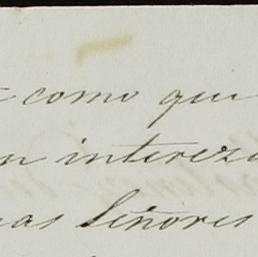 como qui
n intereza
as Señores